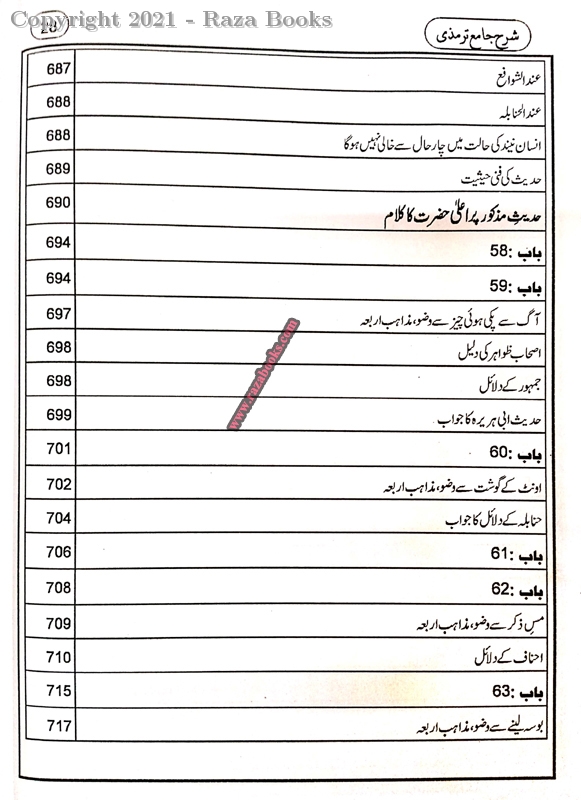 Copyright 2021 - Raza Books
شرح جامع ترمذی
28
عند الشوافع 687
عند الحنابلہ 688
انسان نیند کی حالت میں چار حال سے خالی نہیں ہوگا 688
حدیث کی فنی حیثیت 689
حدیثِ مذکور پر اعلیٰ حضرت کا کلام 690
باب :58 694
باب :59 694
آگ سے پکی ہوئی چیز سے وضو، مذاہب اربعہ 697
اصحاب ظواہر کی دلیل 698
جمہور کے دلائل 698
حدیث ابی ہریرہ کا جواب 699
باب :60 701
اونٹ کے گوشت سے وضو، مذاہب اربعہ 702
حنابلہ کے دلائل کا جواب 704
باب :61 706
باب :62 708
مسِ ذکر سے وضو، مذاہب اربعہ 709
احناف کے دلائل 710
باب :63 715
بوسہ لینے سے وضو، مذاہب اربعہ 717
www.razabooks.com